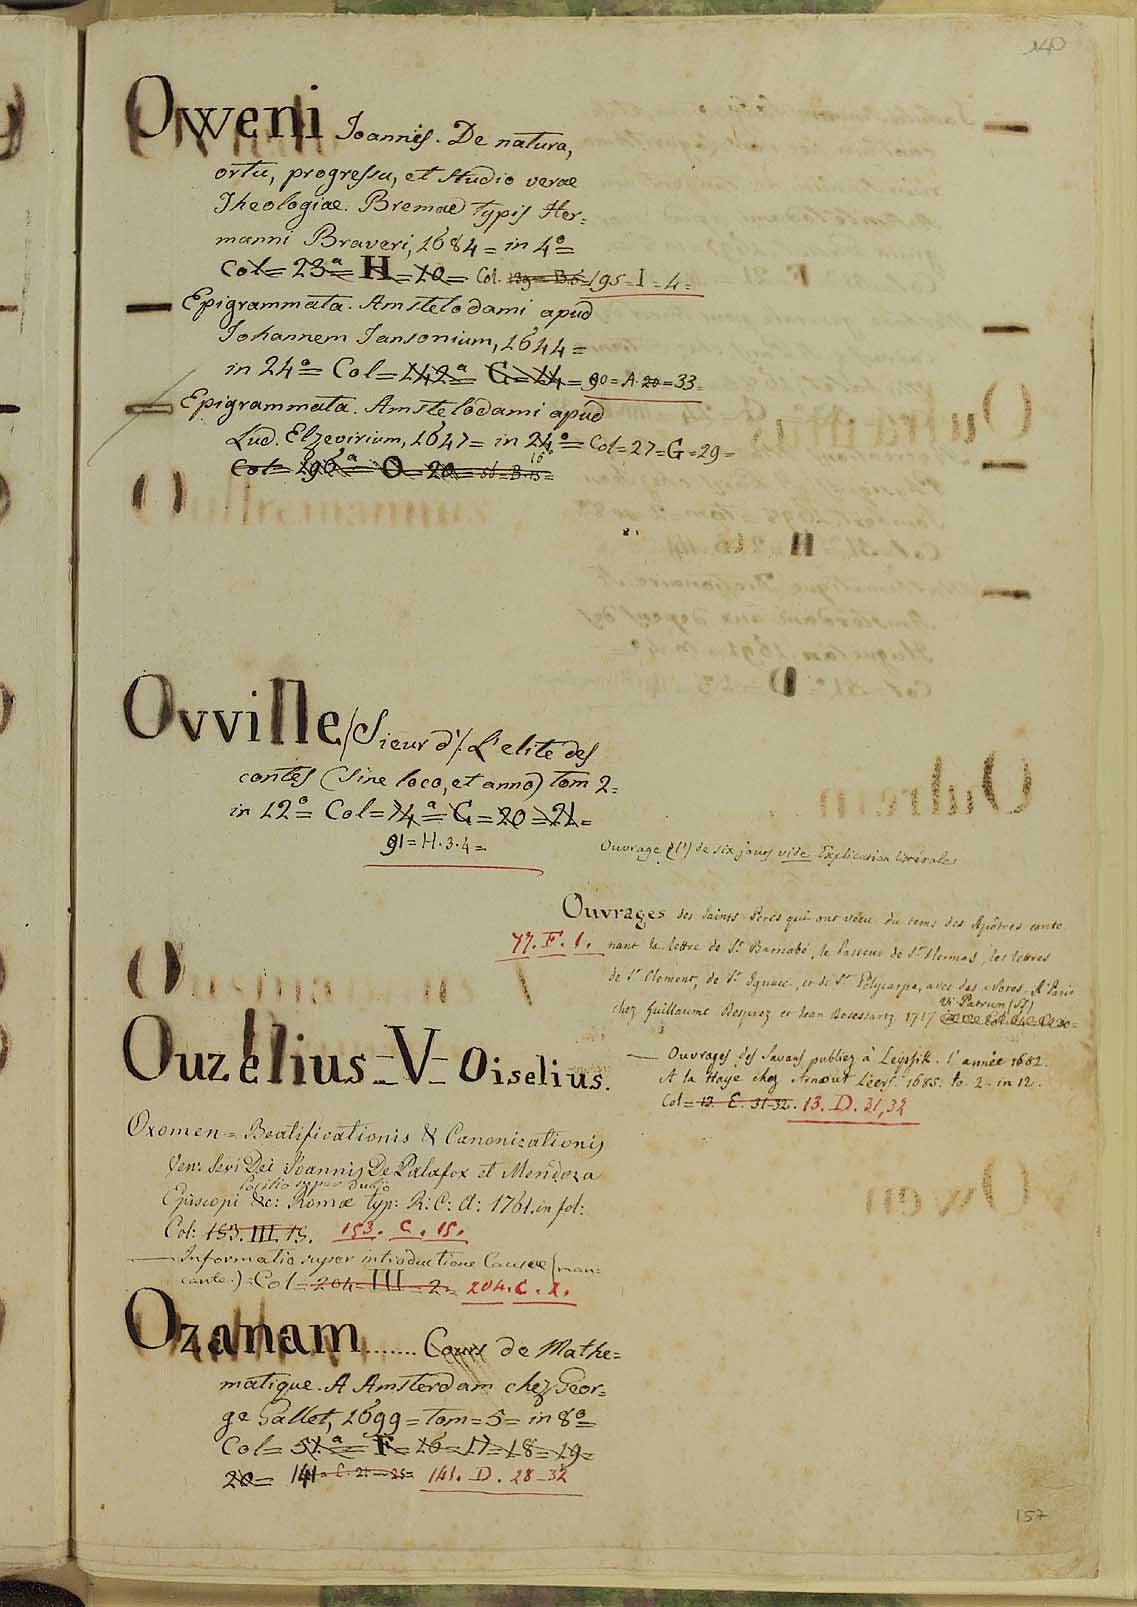 140
Oweni Joannis. De natura,
ortu, progressu, et studio verae
Theologiae. Bremae typis Her=
manni Braveri, 1684 = in 4º =
Col = 23ª = H = 10 = Col. 195 = I = 4 =
Epigrammata. Amstelodami apud
Johannem Jansonium, 1644 =
in 24º = Col = 142ª = G = 14 = 90 = A. 20 = 33 =
Epigrammata. Amstelodami apud
Lud. Elzevirium, 1647 = in 24º = Col = 27 = G = 29 =
16º
Col = 196ª = O = 20 = 56 = B. 15 =
Ovville (Sieur d'). L'elite des
contes (sine loco, et anno) tom 2 =
in 12º = Col = 14ª = G = 20 = 21 =
91 = H. 3. 4 =
Ouvrage (l') de six jours vide Explication litérale
Ouvrages des Saints Peres qui ont vécu du tems des Apôtres conte
77. F. 1. nant la lettre de St. Barnabé, le Pasteur de St. Hermas, les lettres
de St. Clement, de St. Ignace, et de St. Polycarpe, avec des Notes. A Paris
chez Guillaume Desprez et Jean Desessartz 1717
Vi Patrum (SS)
Ouzelius = V = Oiselius.
— Ouvrages des Savans publiez à Leyssik. l'année 1682.
A la Haye chez Arnout Léers. 1685. to. 2 = in 12.
Col = 13. E. 31-32. 13. D. 31, 32
Oxomen = Beatificationis & Canonizationis
Ven: Servi Dei Joannis De Palafox et Mendoza
Positio super dubio
Episcopi &c: Romæ typ: R: C: A: 1761. in fol:
Col: 153. III. 15. 153. C. 15.
— Informatio super introductione Causæ (man=
cante.) = Col = 204 = III = 2. 204. C. 2.
Ozanam ....... Cours de Mathe=
matique. A Amsterdam chez Geor=
ge Gallet, 1699 = Tom = 5 = in 8º =
Col = 51.ª = F = 16 = 17 = 18 = 19 =
20 = 141 = C. 21 = 25 = 141. D. 28-32
157